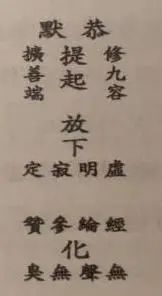 恭默
修九容
提起
擴善端
放下
虛明寂定
經綸參贊
化
無聲無臭